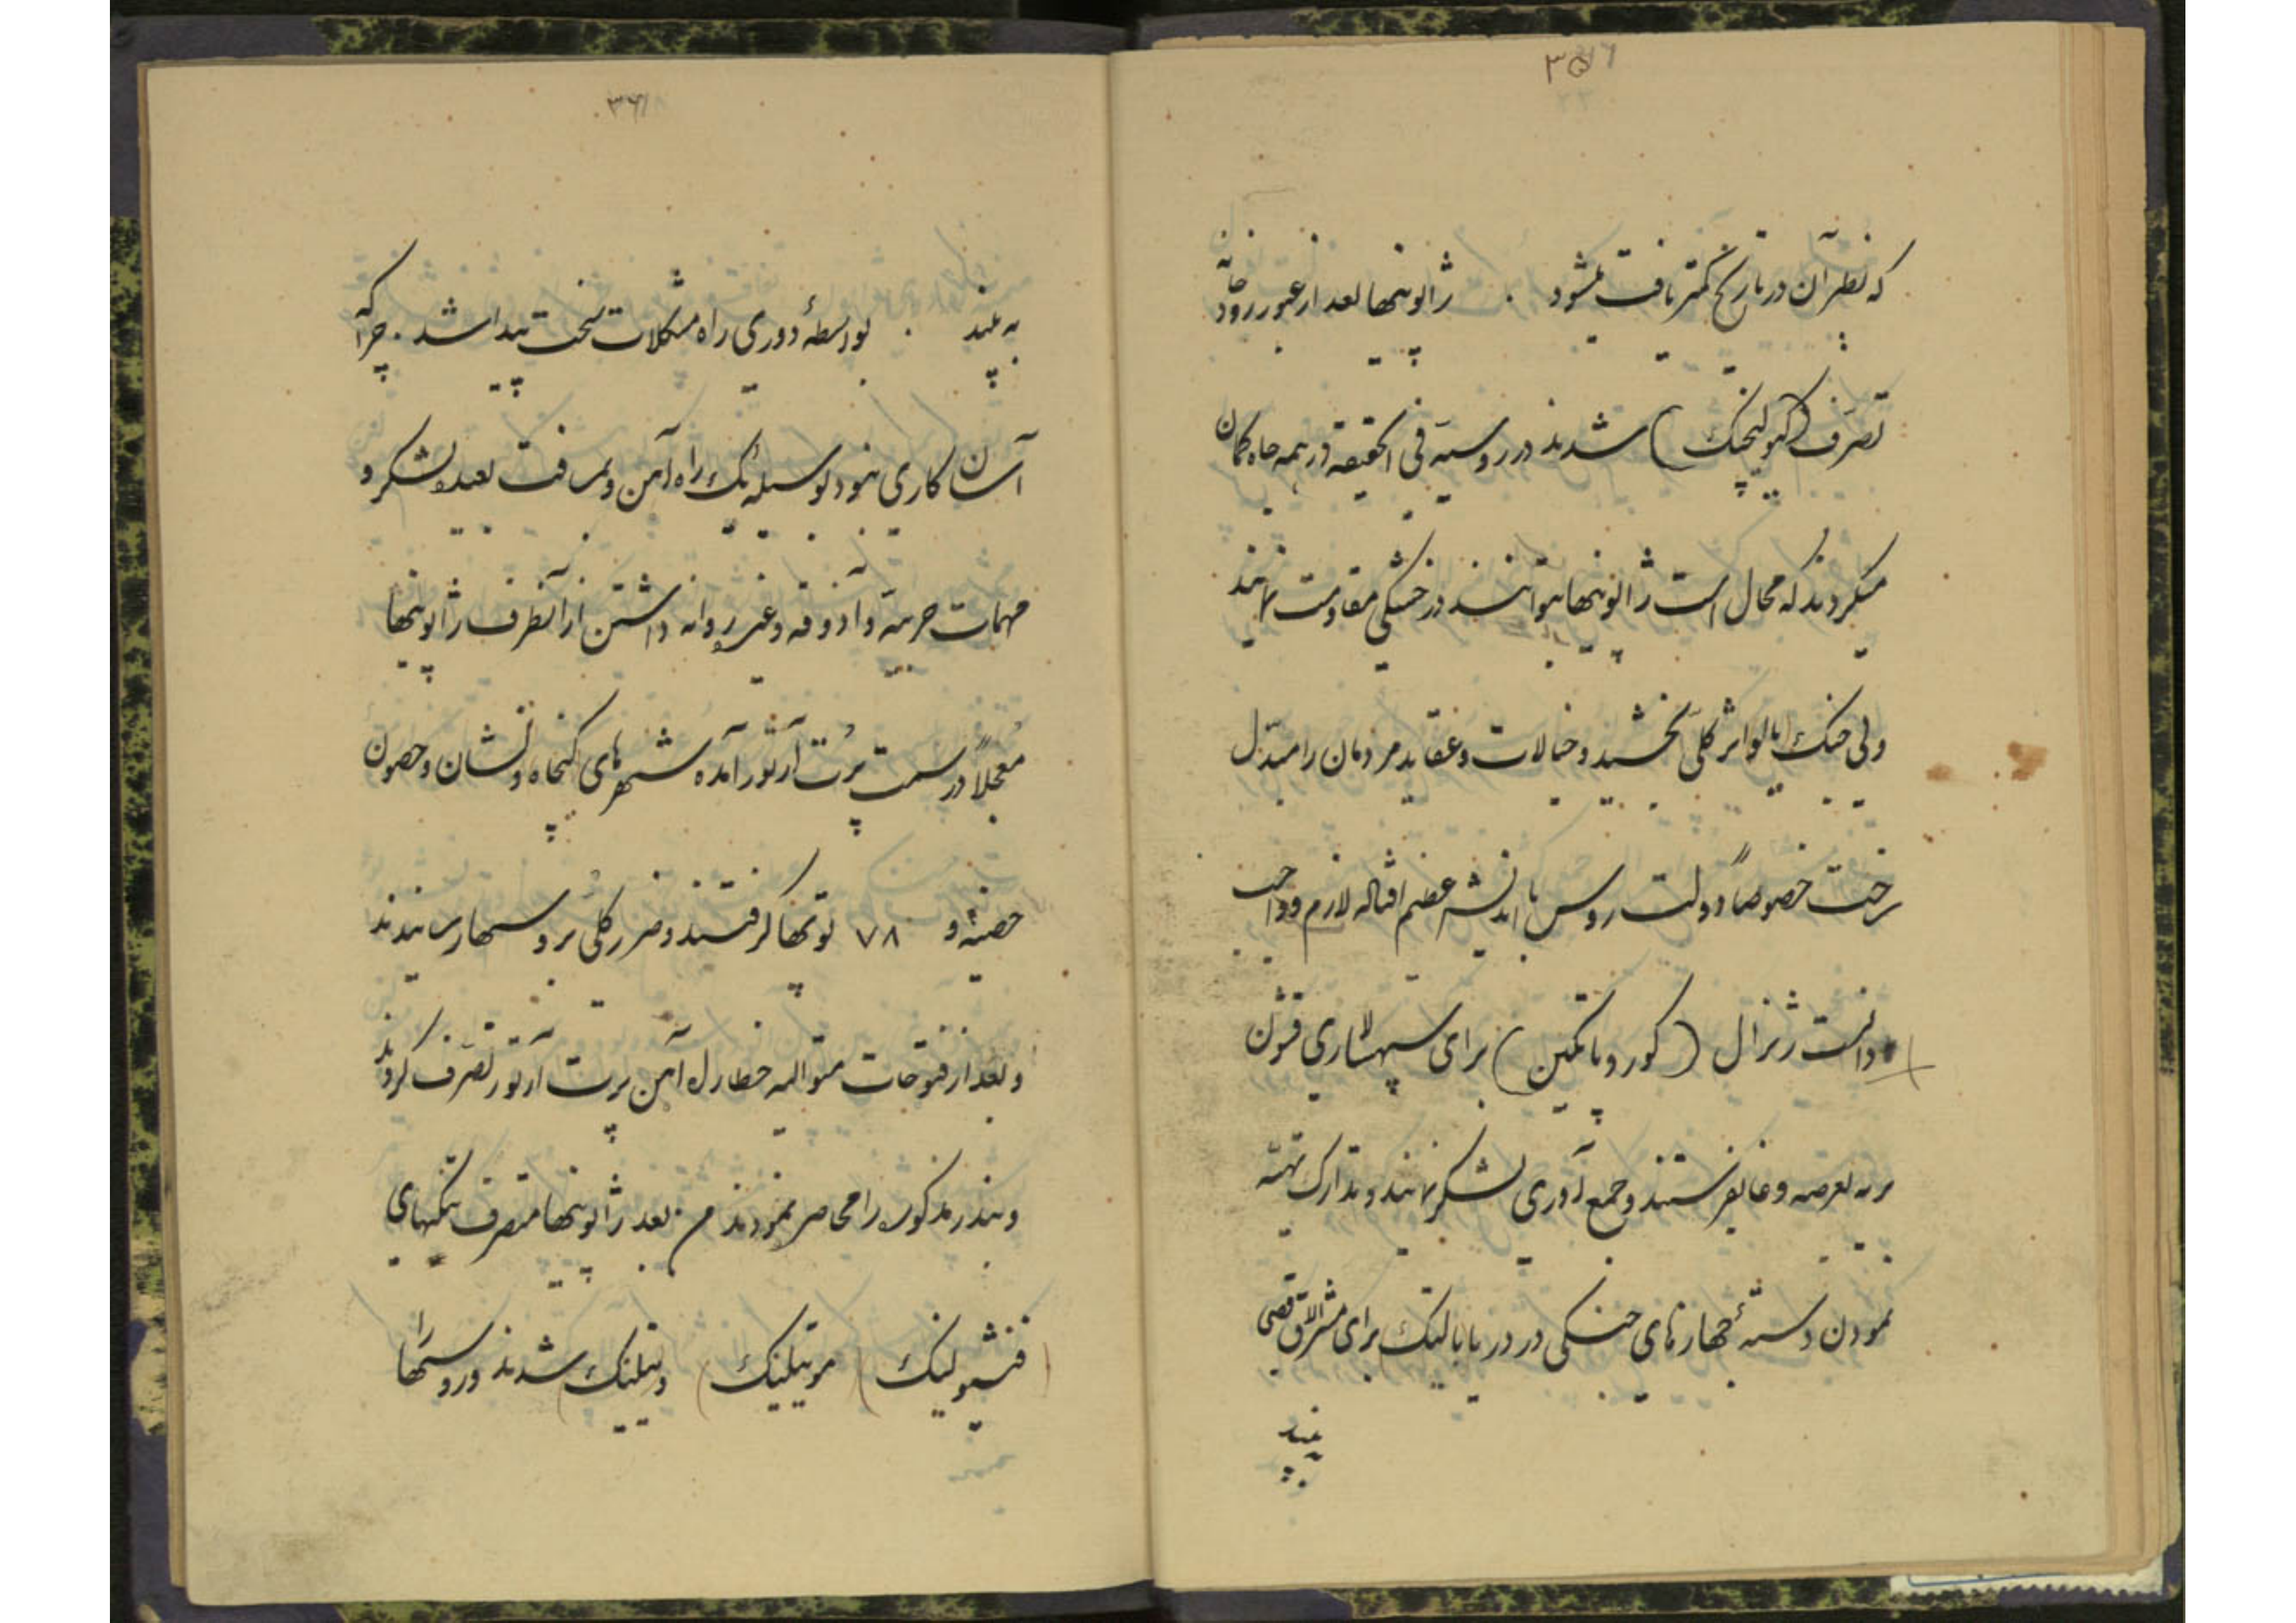 که نظیر آن در تاریخ کمتر یافت میشود . ژاپونیها بعد از عبور رودخانه
تصرف (کیولینچنک) شدند در روسیه فی الحقیقه در همه جاه گمان
میکردند که محال است ژاپونیها بتوانند در خشکی مقاومت نمایند
ولی جنک یالو اثر کلی بخشید و خیالات و عقاید مردمان را مبدّل
ساخت خصوصاً دولت روس با اندیشهٔ عظیم اقباله لازم و واجب
دانست ژنرال (کوروپاتکین) برای سپهسالاری قشون
بریه بعرصه وغا بفرستند و جمع آوری لشکر نمایند و تدارک تهیّه
نمودن دستهٔ جهازهای جنگی در دریا بالتیک برای مشرق الاقصی
به بینید
به بینید . بواسطهٔ دوری راه مشکلات سخت پیدا شد . چرا که
آسان کاری نبود بوسیله یک راه آهن ولمسافت بعیده لشکر و
مهمات حربیّه و آذوقه و غیره روانه داشتن از آنطرف ژاپونیها
معجلاً در سمت پرت آرتور آمده شهرهای کنجاه و نشان و حصون
حصینه و ۷۸ توپها گرفتند و ضرر کلی بروسیها رسانیدند
و بعد از فتوحات متوالیه خط راه آهن پرت آرتور تصرف کردند
و بندر مذکوره را محاصره نمودند من بعد ژاپونیها متصرف تنگیهای
(فنشیولینک) (موتیلینک) و (تیلینک) شدند و روسیها را